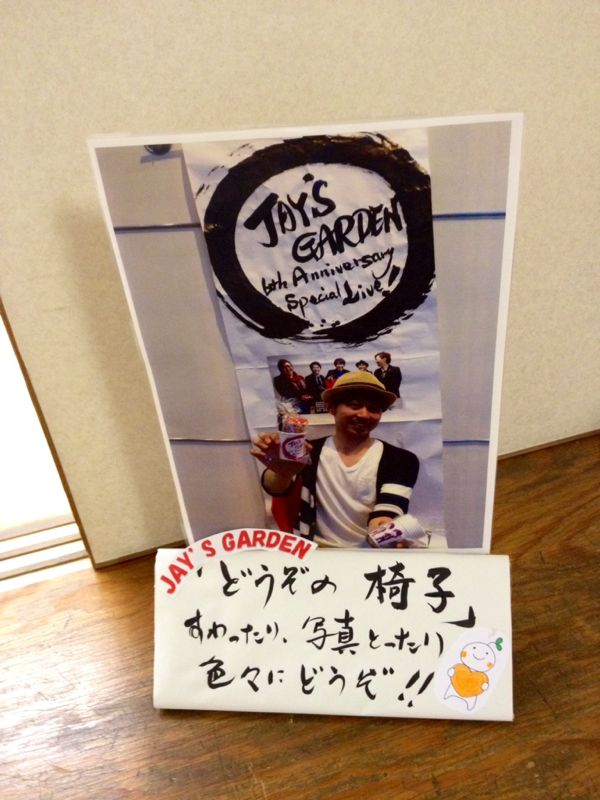 JAY'S
GARDEN
6th Anniversary
Special Live!!
JAY'S GARDEN
「どうぞの 椅子」
すわったり、写真とったり
色々にどうぞ!!